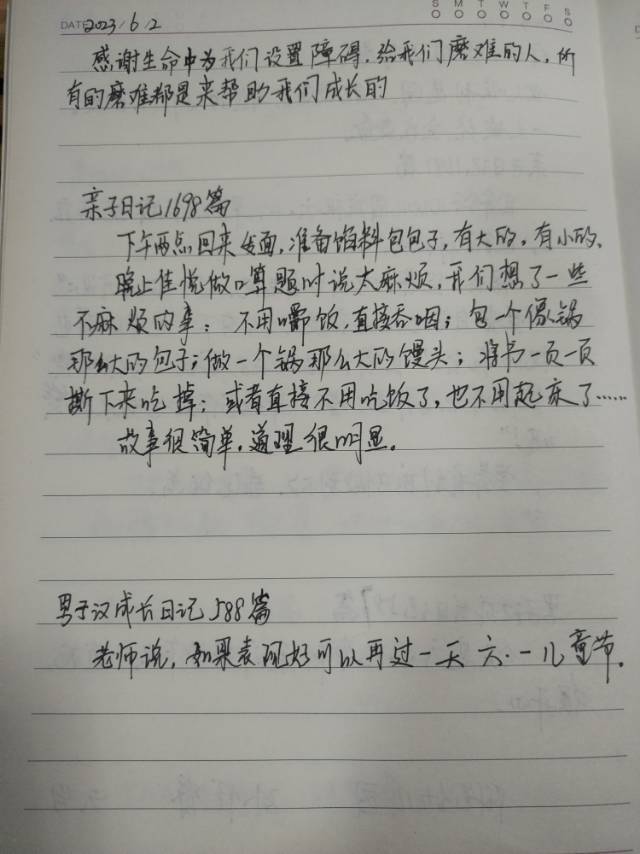 S M T W T F S
DATE 2023/6/2
感谢生命中为我们设置障碍,给我们磨难的人,所
有的磨难都是来帮助我们成长的
亲子日记1698篇
下午两点回来发面,准备馅料包包子,有大的,有小的,
晚上佳悦做口算题时说太麻烦,我们想了一些
不麻烦的事:不用嚼饭,直接吞咽;包一个像锅
那么大的包子;做一个锅那么大的馒头;将书一页一页
撕下来吃掉;或者直接不用吃饭了,也不用起床了……
故事很简单,道理很明显。
男子汉成长日记588篇
老师说,如果表现好可以再过一天六·一儿童节。